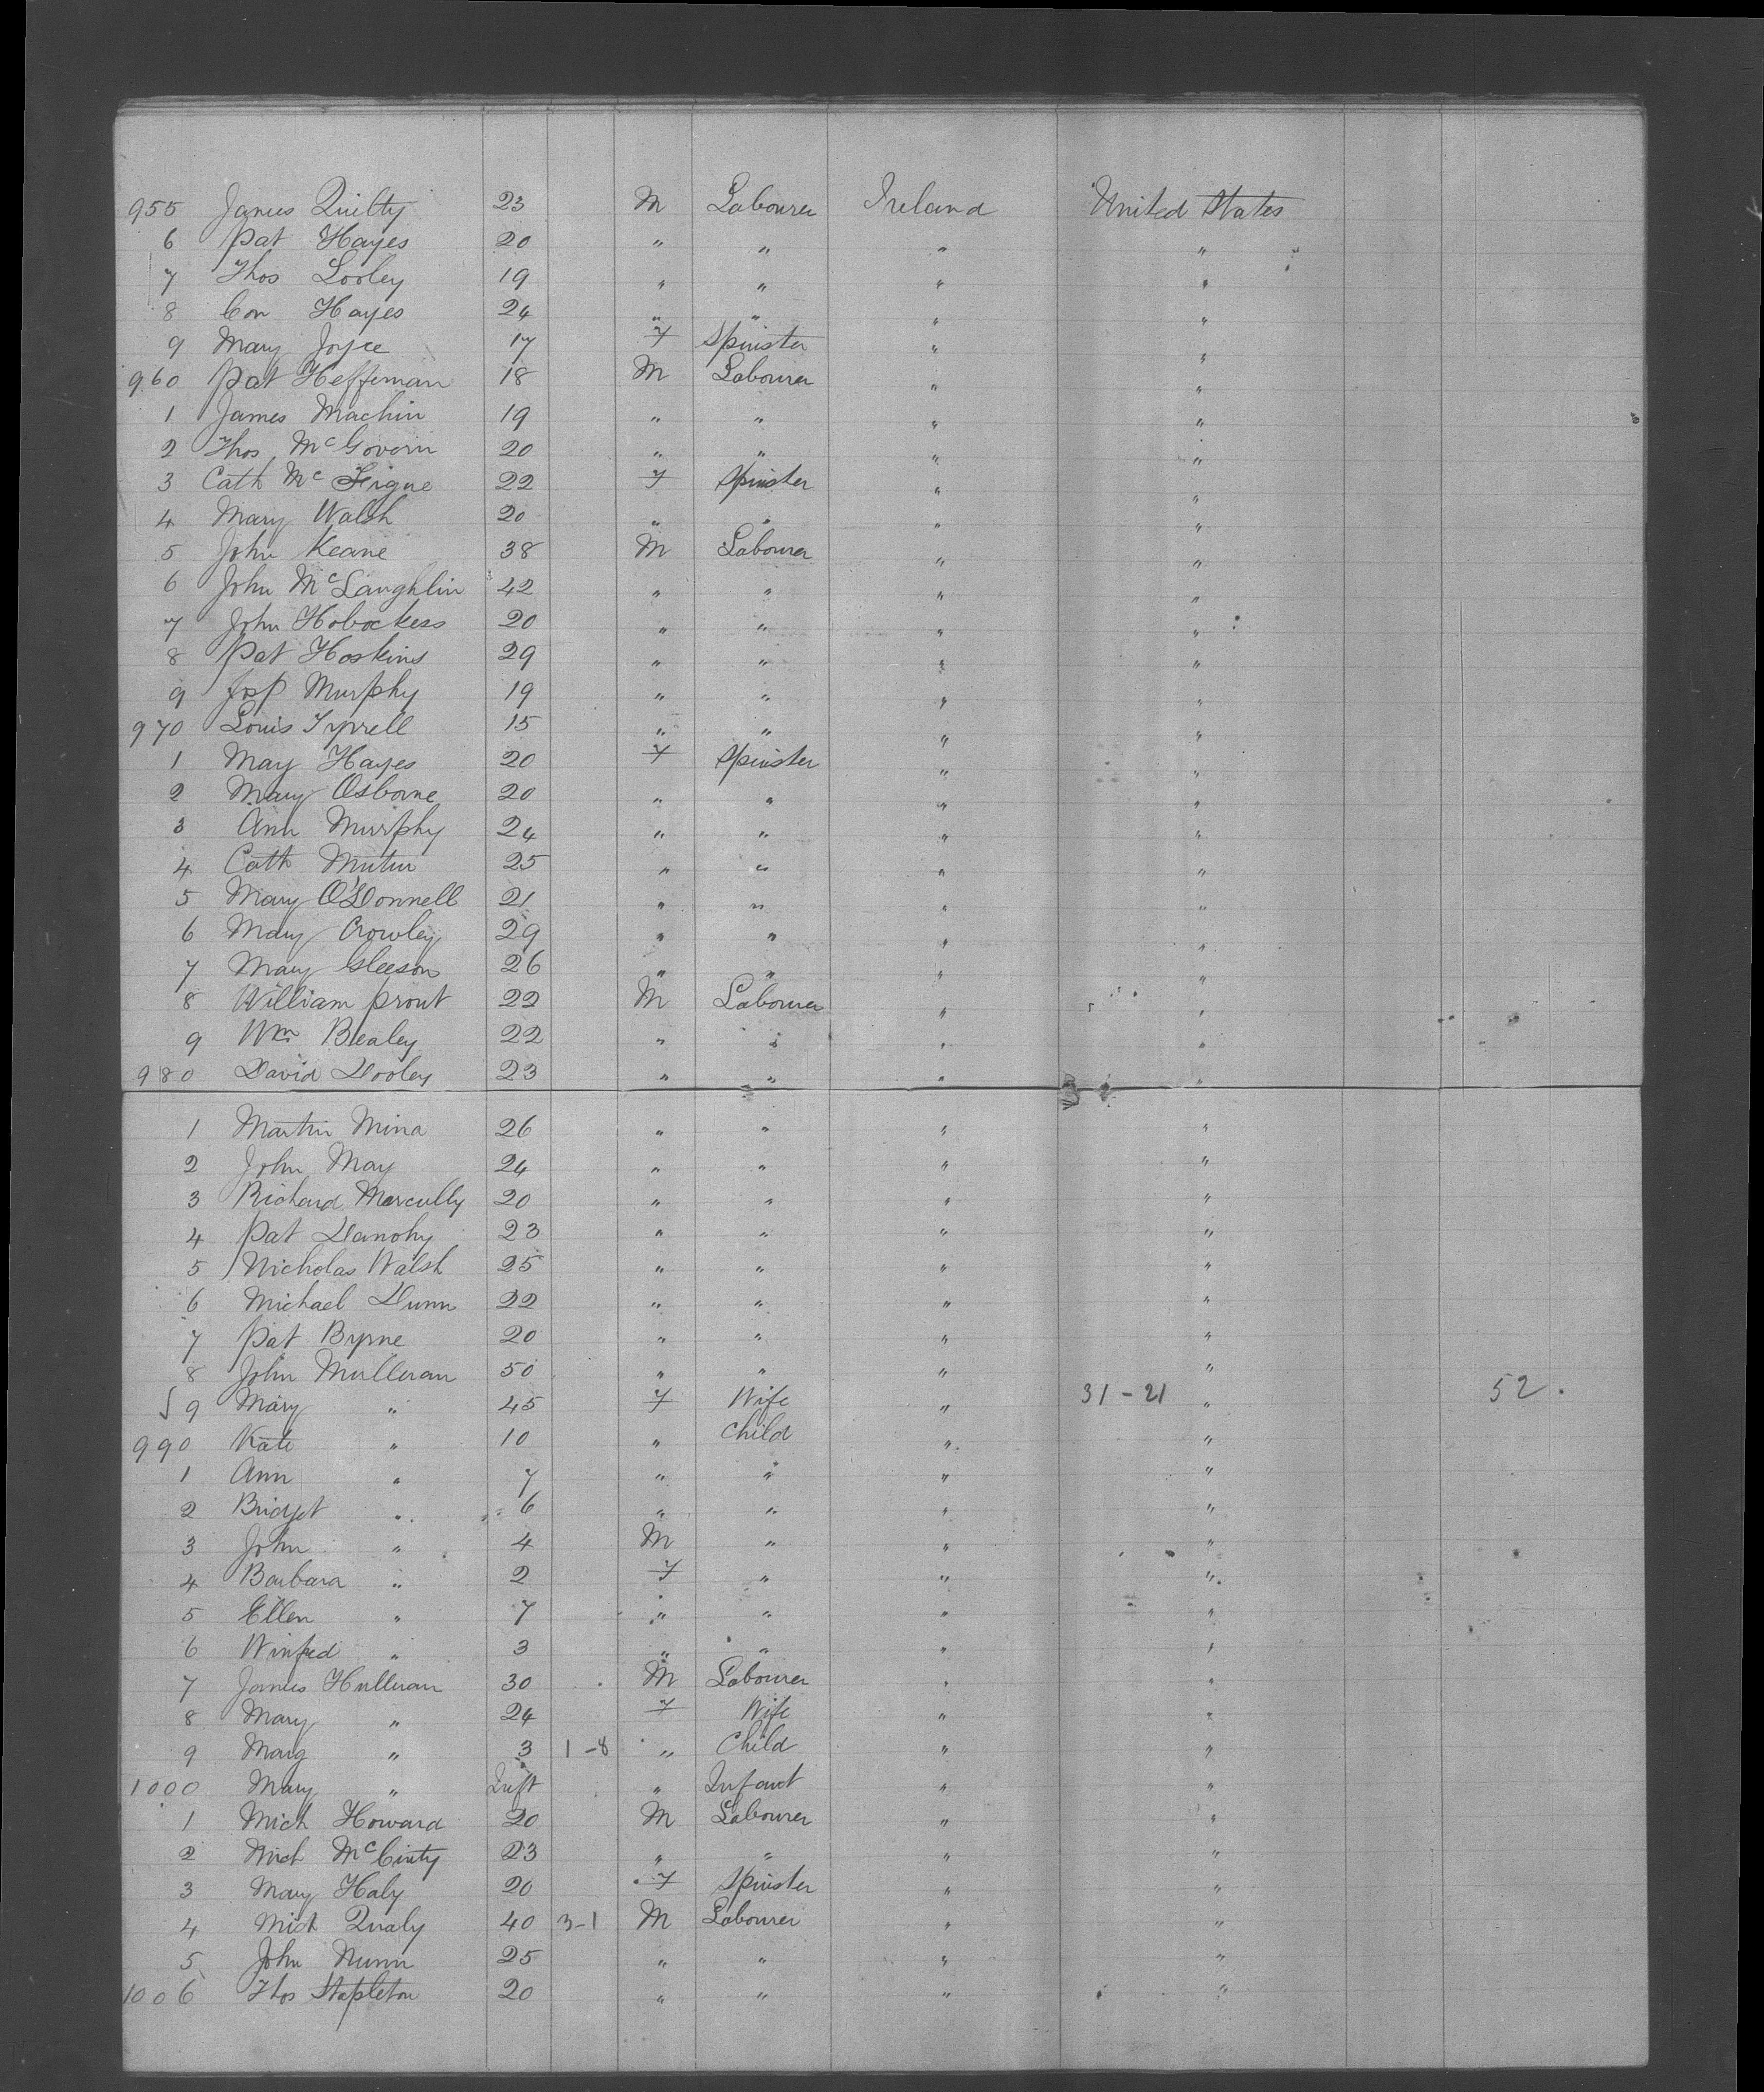 955 James Quilty 23 M Labourer Ireland United States
6 Pat Hayes 20 " " " "
7 Thos Looley 19 " " " "
8 Con Hayes 24 " " " "
9 Mary Joyce 17 F Spinster " "
960 Pat Heffernan 18 M Labourer " "
1 James Machin 19 " " " "
2 Thos McGovern 20 " " " "
3 Cath Mc 22 F Spinster " "
4 Mary Walsh 20 " " " "
5 John Keane 38 M Labourer " "
6 John McLaughlin 42 " " " "
7 John 20 " " " "
8 Pat Hoskins 29 " " " "
9 Jos Murphy 19 " " " "
970 Louis Tyrrell 15 " " " "
1 May Hayes 20 F Spinster " "
2 Mary Osborne 20 " " " "
3 Ann Murphy 24 " " " "
4 Cath 25 " " " "
5 Mary O'Donnell 21 " " " "
6 Mary Crowley 29 " " " "
7 Mary Gleeson 26 " " " "
8 William Prout 22 M Labourer " "
9 Wm Bealey 22 " " " "
980 David Dooley 23 " " " "
1 Martin Mina 26 " " " "
2 John May 24 " " " "
3 Richard 20 " " " "
4 Pat Danohy 23 " " " "
5 Nicholas Walsh 25 " " " "
6 Michael Dunn 22 " " " "
7 Pat Byrne 20 " " " "
8 John Mulleran 50 " " " "
9 Mary " 45 F Wife " 31-21 " 52.
990 Kate " 10 " Child " "
1 Ann " 7 " " " "
2 Bridget " 6 " " " "
3 John " 4 M " " "
4 Barbara " 2 F " " "
5 Ellen " 7 " " " "
6 Winfred " 3 " " " "
7 James Hulleran 30 M Labourer " "
8 Mary " 24 F Wife " "
9 Marg " 3 1-8 " Child " "
1000 Mary " Inft " Infant " "
1 Mich Howard 20 M Labourer " "
2 Mich McGinty 23 " " " "
3 Mary Haly 20 F Spinster " "
4 Mich Qualy 40 3-1 M Labourer " "
5 John Nunn 25 " " " "
1006 Thos Stapleton 20 " " " "